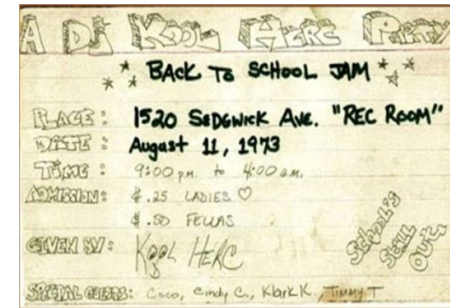 A DJ KOOL HERC PARTY
BACK TO SCHOOL JAM
PLACE: 1520 SEDGWICK AVE. "REC ROOM"
DATE: August 11, 1973
TIME: 9:00 p.m. to 4:00 a.m.
ADMISSION: $.25 LADIES ♡
$.50 FELLAS
GIVEN BY: KOOL HERC
School's Still Out!
SPECIAL GUESTS: Coco, Cindy C., Klark K., Timmy T